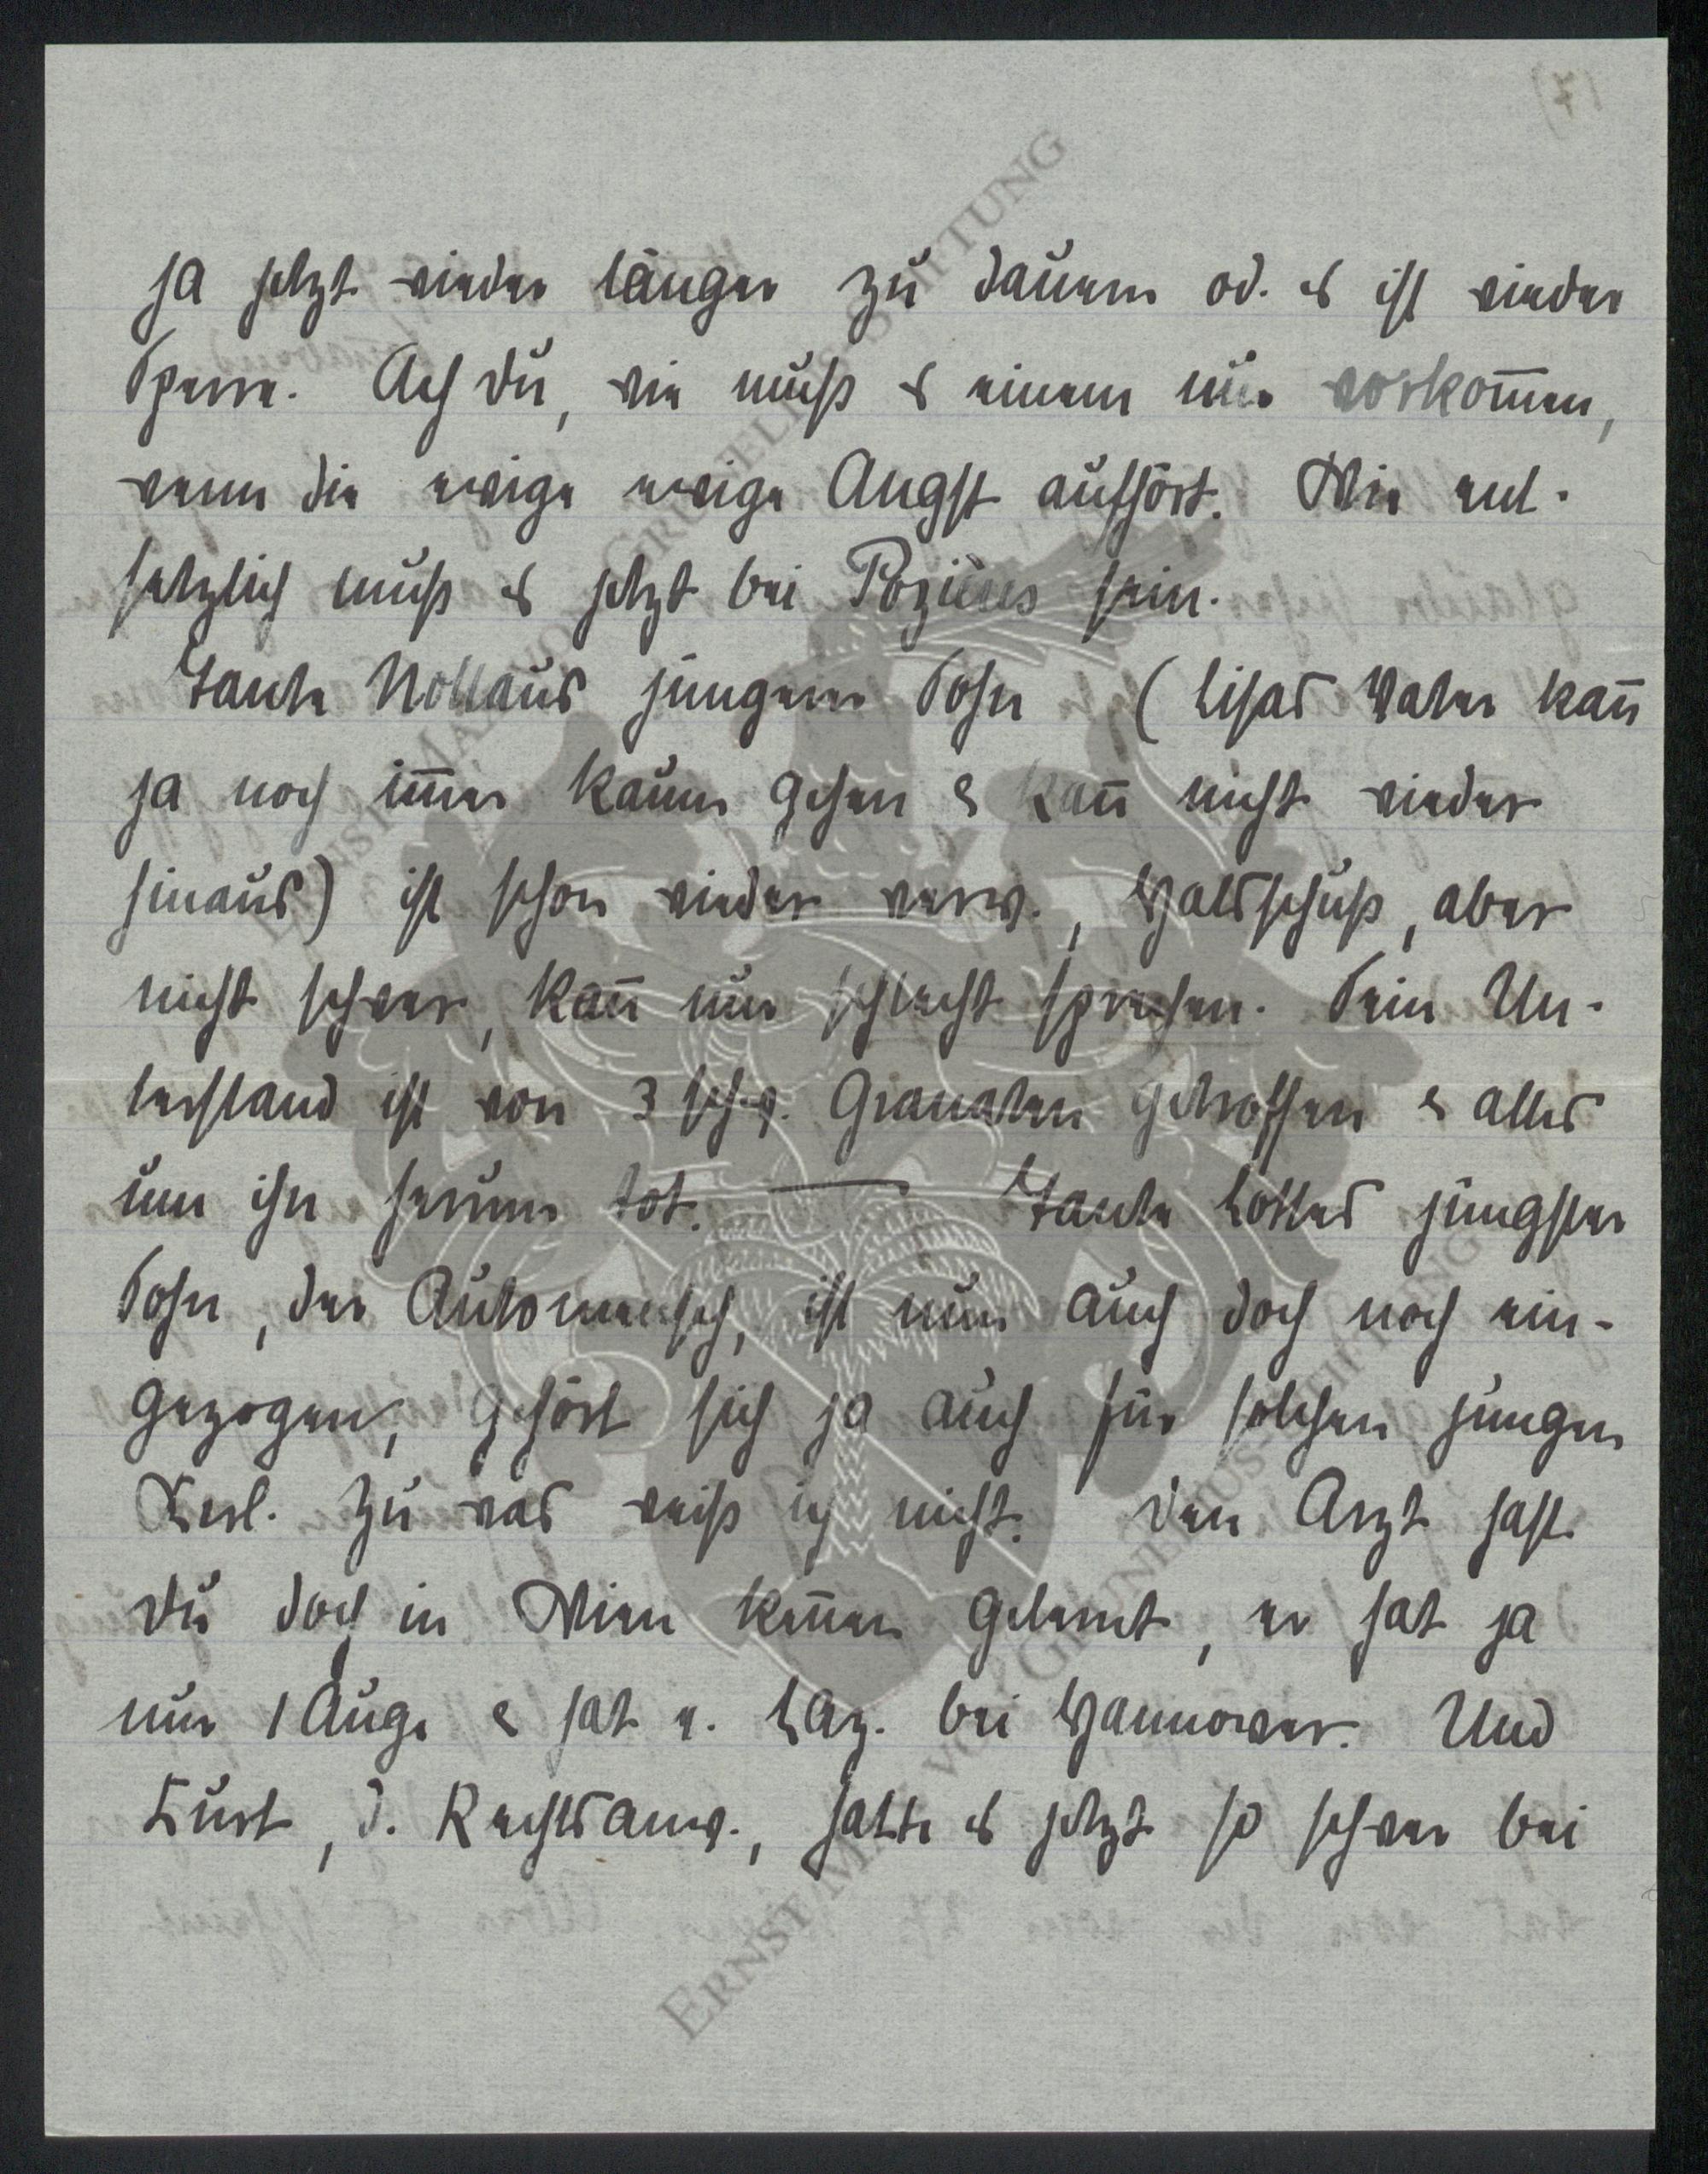 ja jetzt wieder länger zu dauern od. es ist wieder
Sperre. Ach du, wie muß es einem nur vorkom̅en,
wenn die ewige ewige Angst aufhört. Wie ent-
setzlich muß es jetzt bei Pozières sein.
Tante Nollaus jüngerer Sohn (Lisas Vater kan̅
ja noch im̅er kaum gehen & kan̅ nicht wieder
hinaus) ist schon wieder verw., Halsschuß, aber
nicht schwer, kan̅ nur schlecht sprechen. Sein Un-
terstand ist von 3 schw. Granaten getroffen & alles
um ihn herum tot. — Tante Lottes jüngster
Sohn, der Automensch, ist nun auch doch noch ein-
gezogen, gehört sich ja auch für solchen jungen
Kerl. Zu was weiß ich nicht. Den Arzt hast
du doch in Wien ken̅en gelernt, er hat ja
nur 1 Auge & hat e. Laz. bei Hannover. Und
Kurt, d. Rechtsanw., hatte es jetzt so schwer bei
ERNST MAX VON GRUNELIUS-STIFTUNG
ERNST MAX VON GRUNELIUS-STIFTUNG